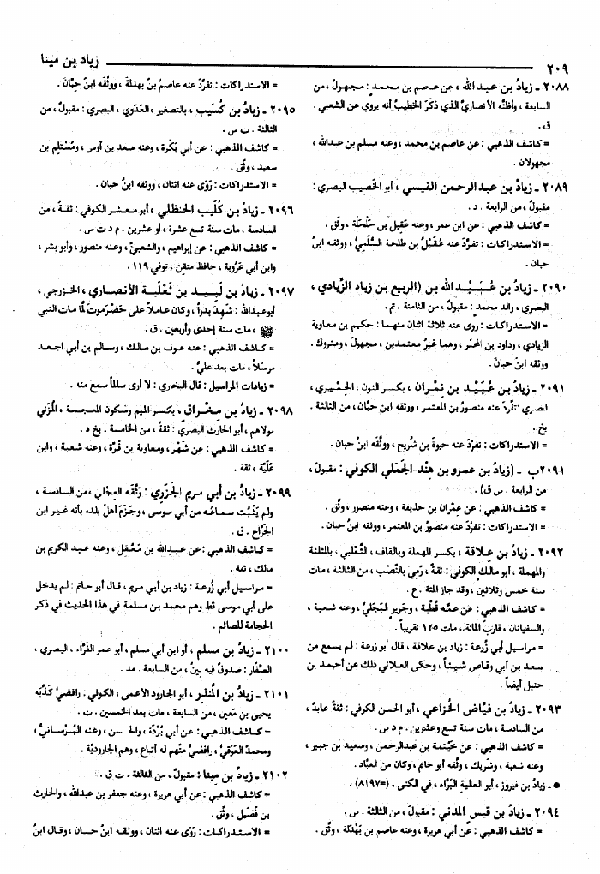 ٢٠٩
زياد بن مينا
٢٠٨٨ ـ زيادُ بن عبد الله ، عن عاصم بن محمد : مجهول ، من
السابعة ، وأظنُّه الأنصاريَّ الذي ذكرَ الخطيبُ أنه يروي عن الشعبي .
ق .
= كاشف الذهبي : عن عاصم بن محمد ، وعنه مسلم بن عبدالله ،
مجهولان .
٢٠٨٩ ـ زيادُ بن عبدالرحمن القيسي ، أبو الخَصيب البصري :
مقبول ، من الرابعة . د .
= كاشف الذهبي : عن ابن عمر ، وعنه عَقيل بن طلحة ، وثّق .
= الاستدراكات : تفرّد عنه عَقيلُ بن طلحة السُّلَمي ، ووثقه ابنُ
حبان .
٢٠٩٠ ـ زيادُ بن عُبَيدالله بن (الربيع بن زياد الزِّيادي ،
البصري ، والد محمد : مقبول ، من الثامنة . تم .
= الاستدراكات : روى عنه ثلاثة اثنان منهما : حكيم بن معاوية
الزيادي ، وداود بن المحبّر ، وهما غيرُ معتمدين ، مجهول ، ومتروك .
ووثقه ابنُ حبان .
٢٠٩١ ـ زيادُ بن عُبَيد بن نِمْران ، بكسر النون ، الحِمْيري ،
المصري : تفرّد عنه منصور بن المعتمر ، ووثقه ابن حبّان ، من الثالثة .
بخ .
= الاستدراكات : تفرّد عنه حيوة بن شُريح ، ووثّقه ابنُ حبان .
٢٠٩١ب ـ (زيادُ بن عمرو بن هند الجَمَلي الكوفي : مقبول ،
من الرابعة . س ق) .
= كاشف الذهبي : عن عِمْران بن حذيفة ، وعنه منصور ، وثّق .
= الاستدراكات : تفرّد عنه منصورُ بن المعتمر ، ووثقه ابنُ حبان .
٢٠٩٢ ـ زيادُ بن عِلاقة ، بكسر المهملة وبالقاف ، الثَّعْلَبي ، بالمثلثة
والمهملة ، أبو مالك الكوفي : ثقةٌ ، رُمِيَ بالنَّصْب ، من الثالثة ، مات
سنة خمس وثلاثين ، وقد جاز المئة . ع .
= كاشف الذهبي : عن عمّه قُطْبة ، وجَرير البَجَلي ، وعنه شعبة ،
والسفيانان ، قارب المائة ، مات ١٢٥ تقريباً .
= مراسيل أبي زُرعة : زياد بن علاقة ، قال أبو زرعة : لم يسمع من
سعد بن أبي وقاص شيئاً ، وحكى العلائي ذلك عن أحمد بن
حنبل أيضاً .
٢٠٩٣ ـ زيادُ بن فَيّاض الخُزاعي ، أبو الحسن الكوفي : ثقةٌ عابد ،
من السادسة ، مات سنة تسع وعشرين . م د س .
= كاشف الذهبي : عن خَيْثمة بن عبدالرحمن ، وسعيد بن جبير ،
وعنه شعبة ، وشَريك ، وثّقه أبو حاتم ، وكان من العُبّاد .
• ـ زيادُ بن فيروز ، أبو العالية البَرّاء ، في الكنى . (=٨١٩٧) .
٢٠٩٤ ـ زيادُ بن قيس المدني : مقبول ، من الثالثة . س .
= كاشف الذهبي : عن أبي هريرة ، وعنه عاصم بن بَهْدَلة ، وثّق .
= الاستدراكات : تفرّد عنه عاصمُ بنُ بهدلة ، ووثّقه ابنُ حبّان .
٢٠٩٥ ـ زيادُ بن كُسَيب ، بالتصغير ، العَدَوي ، البصري : مقبول ، من
الثالثة . ت س .
= كاشف الذهبي : عن أبي بَكْرة ، وعنه سعد بن أوس ، ومُسْتَلِم بن
سعيد ، وثّق .
= الاستدراكات : روَى عنه اثنان ، ووثقه ابنُ حبان .
٢٠٩٦ ـ زيادُ بن كُلَيب الحنظلي ، أبو معشر الكوفي : ثقةٌ ، من
السادسة ، مات سنة تسع عشرة ، أو عشرين . م د ت س .
= كاشف الذهبي : عن إبراهيم ، والشعبيِّ ، وعنه منصور ، وأبو بشر ،
وابن أبي عَروبة ، حافظ متقن ، توفي ١١٩ .
٢٠٩٧ ـ زيادُ بن لَبيد بن ثعلبة الأنصاري ، الخزرجي ،
أبوعبدالله : شهدَ بدراً ، وكان عاملاً على حَضْرَموتَ لمّا مات النبي
ﷺ ، مات سنة إحدى وأربعين . ق .
= كاشف الذهبي : عنه عوف بن مالك ، وسالم بن أبي الجعد
مرسلاً ، مات بعد عليّ .
= زيادات المراسيل : قال البخاري : لا أرى سالماً سمع منه .
٢٠٩٨ ـ زيادُ بن مِخْراق ، بكسر الميم وسكون المعجمة ، المُزَني
مولاهم ، أبو الحارث البصري : ثقةٌ ، من الخامسة . بخ د .
= كاشف الذهبي : عن شَهْر ، ومعاوية بن قُرّة ، وعنه شعبة ، وابن
عُلَيّة ، ثقة .
٢٠٩٩ ـ زيادُ بن أبي مريم الجَزَري : وثّقه العِجلي ، من السادسة ،
ولم يَثْبُت سماعُه من أبي موسى ، وجَزَمَ أهلُ بلده بأنه غيرُ ابن
الجَرّاح . ق .
= كاشف الذهبي : عن عبدالله بن مَعْقِل ، وعنه عبدالكريم بن
مالك ، ثقة .
= مراسيل أبي زُرعة : زياد بن أبي مريم ، قال أبو حاتم : لم يدخل
على أبي موسى قط وهم محمد بن مسلمة في هذا الحديث في ذكر
الحجامة للصائم .
٢١٠٠ ـ زيادُ بن مسلم ، أو ابن أبي مسلم ، أبو عمر الفَرّاء ، البصري ،
الصفّار : صدوقٌ فيه لِينٌ ، من السابعة . مد .
٢١٠١ ـ زيادُ بن المنذر ، أبو الجارود الأعمى ، الكوفي : رافضيٌّ كذّبه
يحيى بن مَعين ، من السابعة ، مات بعد الخمسين . ت .
= كاشف الذهبي : عن أبي بُرْدة ، والحسن ، وعنه المُرْسانيُّ
ومحمدُ العَوْفيُّ ، رافضيٌّ متّهم له أتباع ، وهم الجاروديّة .
٢١٠٢ ـ زيادُ بن مِينا : مقبول ، من الثالثة . ت ق .
= كاشف الذهبي : عن أبي هريرة ، وعنه جعفر بن عبدالله ، والحارث
بن فُضَيل ، وثّق .
= الاستدراكات : رَوَى عنه اثنان ، ووثقه ابنُ حبان ، وقال ابنُ